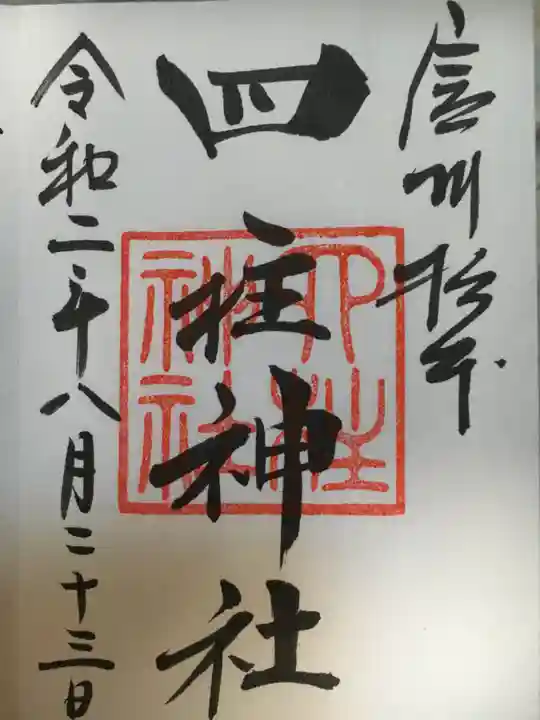 信州松本
四柱神社
四柱
神社
令和二年八月二十三日